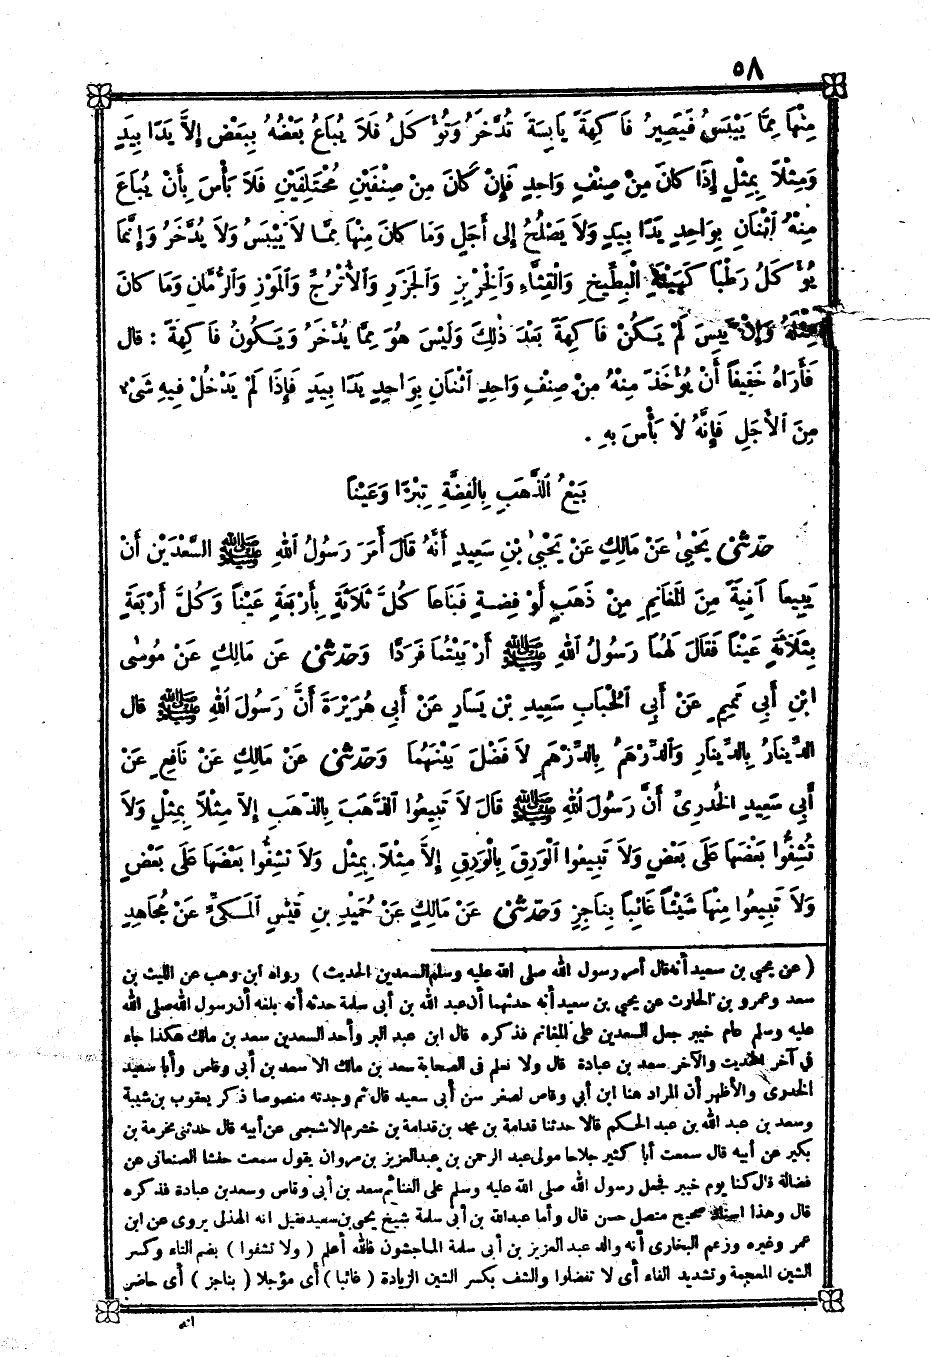 ٥٨
مِنْهَا مِمَّا يَيْبَسُ فَيَصِيرُ فَاكِهَةً يَابِسَةً تُدَّخَرُ وَتُؤْكَلُ فَلَا يُبَاعُ بَعْضُهُ بِبَعْضٍ إِلَّا يَدًا بِيَدٍ
وَمِثْلًا بِمِثْلٍ إِذَا كَانَ مِنْ صِنْفٍ وَاحِدٍ فَإِنْ كَانَ مِنْ صِنْفَيْنِ مُخْتَلِفَيْنِ فَلَا بَأْسَ بِأَنْ يُبَاعَ
مِنْهُ اثْنَانِ بِوَاحِدٍ يَدًا بِيَدٍ وَلَا يَصْلُحُ إِلَى أَجَلٍ وَمَا كَانَ مِنْهَا مِمَّا لَا يَيْبَسُ وَلَا يُدَّخَرُ وَإِنَّمَا
يُؤْكَلُ رَطْبًا كَهَيْئَةِ الْبِطِّيخِ وَالْقِثَّاءِ وَالْخِرْبِزِ وَالْجَزَرِ وَالْأُتْرُجِّ وَالْمَوْزِ وَالرُّمَّانِ وَمَا كَانَ
مِثْلَهُ وَإِنْ يَبِسَ لَمْ يَكُنْ فَاكِهَةً بَعْدَ ذَلِكَ وَلَيْسَ هُوَ مِمَّا يُدَّخَرُ وَيَكُونُ فَاكِهَةً : قال
فَأَرَاهُ خَفِيفًا أَنْ يُؤْخَذَ مِنْهُ مِنْ صِنْفٍ وَاحِدٍ اثْنَانِ بِوَاحِدٍ يَدًا بِيَدٍ فَإِذَا لَمْ يَدْخُلْ فِيهِ شَيْءٌ
مِنَ الْأَجَلِ فَإِنَّهُ لَا بَأْسَ بِهِ .
بَيْعُ الذَّهَبِ بِالْفِضَّةِ تِبْرًا وَعَيْنًا
حَدَّثَنِي يَحْيَى عَنْ مَالِكٍ عَنْ يَحْيَى بْنِ سَعِيدٍ أَنَّهُ قَالَ أَمَرَ رَسُولُ اللهِ ﷺ السَّعْدَيْنِ أَنْ
يَبِيعَا آنِيَةً مِنَ الْمَغَانِمِ مِنْ ذَهَبٍ أَوْ فِضَّةٍ فَبَاعَا كُلَّ ثَلَاثَةٍ بِأَرْبَعَةٍ عَيْنًا وَكُلَّ أَرْبَعَةٍ
بِثَلَاثَةٍ عَيْنًا فَقَالَ لَهُمَا رَسُولُ اللهِ ﷺ أَرْبَيْتُمَا فَرُدَّا وَحَدَّثَنِي عَنْ مَالِكٍ عَنْ مُوسَى
ابْنِ أَبِي تَمِيمٍ عَنْ أَبِي الْحُبَابِ سَعِيدِ بْنِ يَسَارٍ عَنْ أَبِي هُرَيْرَةَ أَنَّ رَسُولَ اللهِ ﷺ قال
الدِّينَارُ بِالدِّينَارِ وَالدِّرْهَمُ بِالدِّرْهَمِ لَا فَضْلَ بَيْنَهُمَا وَحَدَّثَنِي عَنْ مَالِكٍ عَنْ نَافِعٍ عَنْ
أَبِي سَعِيدٍ الْخُدْرِيِّ أَنَّ رَسُولَ اللهِ ﷺ قَالَ لَا تَبِيعُوا الذَّهَبَ بِالذَّهَبِ إِلَّا مِثْلًا بِمِثْلٍ وَلَا
تُشِفُّوا بَعْضَهَا عَلَى بَعْضٍ وَلَا تَبِيعُوا الْوَرِقَ بِالْوَرِقِ إِلَّا مِثْلًا بِمِثْلٍ وَلَا تُشِفُّوا بَعْضَهَا عَلَى بَعْضٍ
وَلَا تَبِيعُوا مِنْهَا شَيْئًا غَائِبًا بِنَاجِزٍ وَحَدَّثَنِي عَنْ مَالِكٍ عَنْ حُمَيْدِ بْنِ قَيْسٍ الْمَكِّيِّ عَنْ مُجَاهِدٍ
( عن يحيى بن سعيد أنه قال أمر رسول الله صلى الله عليه وسلم السعدين الحديث ) رواه ابن وهب عن الليث بن
سعد وعمرو بن الحارث عن يحيى بن سعيد أنه حدثهما أن عبد الله بن أبى سلمة حدثه أنه بلغه أن رسول الله صلى الله
عليه وسلم عام خيبر جعل السعدين على المغانم فذكره قال ابن عبد البر وأحد السعدين سعد بن مالك هكذا جاء
فى آخر الحديث والآخر سعد بن عبادة قال ولا نعلم فى الصحابة سعد بن مالك الا سعد بن أبى وقاص وأبا سعيد
الخدرى والأظهر أن المراد هنا ابن أبي وقاص لصغر سن أبى سعيد قال ثم وجدته منصوصا ذكر يعقوب بن شيبة
وسعد بن عبد الله بن عبد الحكم قالا حدثنا قدامة بن محمد بن قدامة بن خشرم الاشجعى عن أبيه قال حدثنى مخرمة بن
بكير عن أبيه قال سمعت أبا كثير جلاحا مولى عبد الرحمن بن عبد العزيز بن مروان يقول سمعت حنشا الصنعانى عن
فضالة قال كنا يوم خيبر فجعل رسول الله صلى الله عليه وسلم على الغنائم سعد بن أبى وقاص وسعد بن عبادة فذكره
قال وهذا اسناد صحيح متصل حسن قال وأما عبد الله بن أبى سلمة شيخ يحيى بن سعيد فقيل انه الهذلى يروى عن ابن
عمر وغيره وزعم البخارى أنه والد عبد العزيز بن أبى سلمة الماجشون فالله أعلم ( ولا تشفوا ) بضم التاء وكسر
الشين المعجمة وتشديد الفاء أى لا تفضلوا والشف بكسر الشين الزيادة ( غائبا ) أى مؤجلا ( بناجز ) أى حاضر
انه